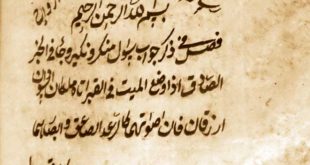 بسم الله الرحمن الرحيم
فصل في ذكر جواب رسول منكر ونكير وجاء في الخبر
الصادق اذا وضع الميت في القبر اتاه ملكان
ازرقان فان اصواتهما كالرعد الصاعق وابصارهما